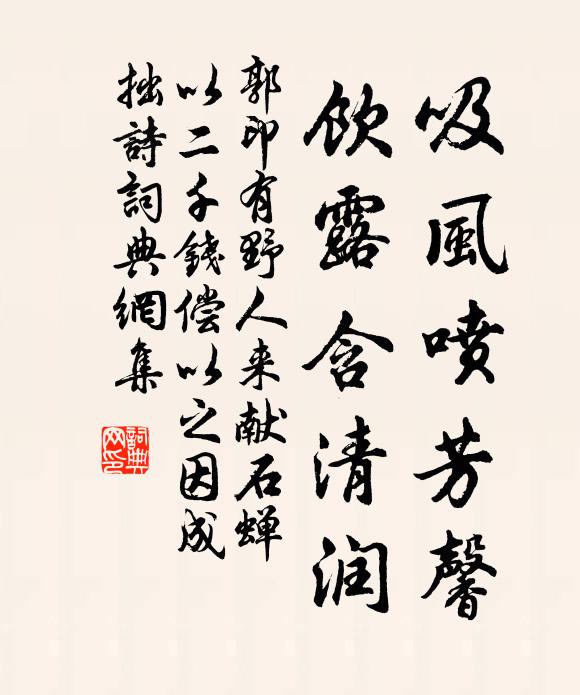 吸風喷芳馨
飲露含清润
郭印有野人来献石蝉
以二千錢偿以之因成
拙詩詞典網集
詞典
网印